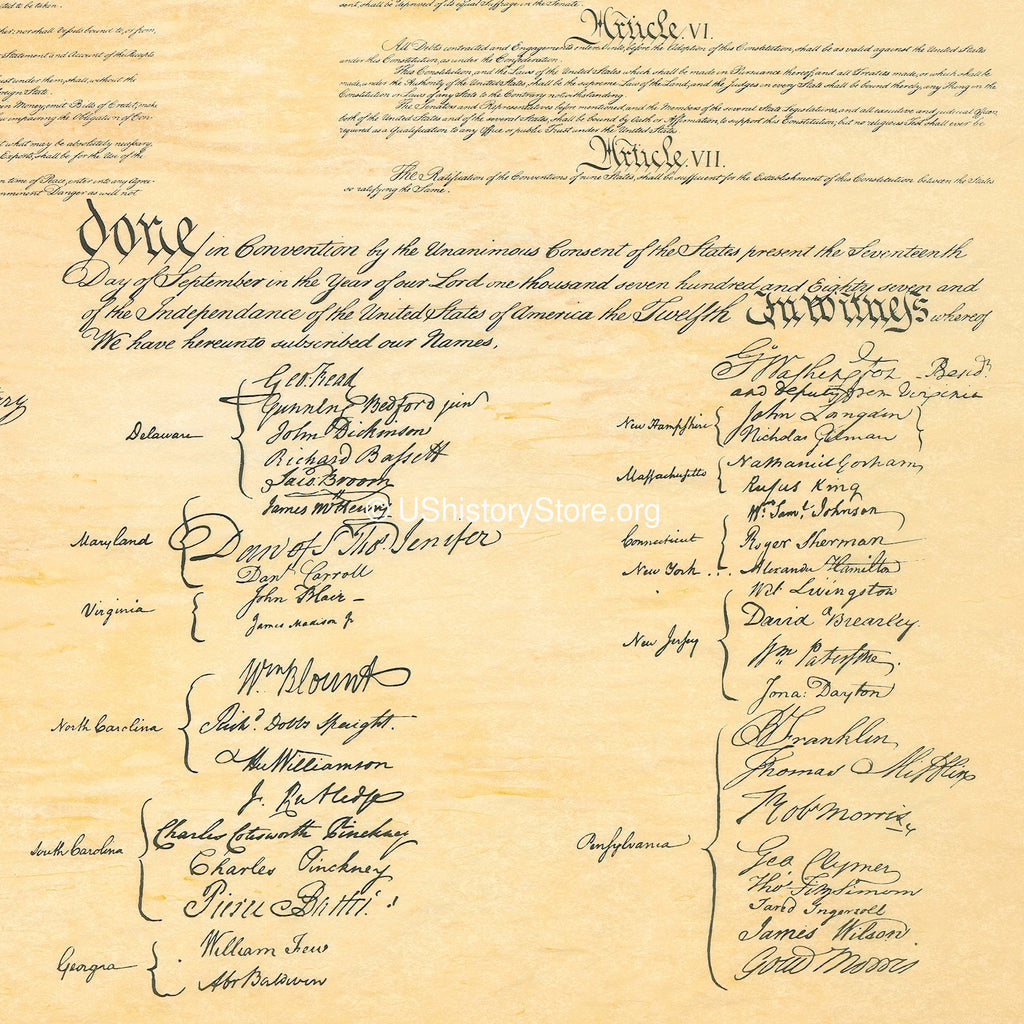 ted to be taken.
sent, shall be deprived of its equal Suffrage in the Senate.
Article. VI.
All Debts contracted and Engagements entered into, before the Adoption of this Constitution, shall be as valid against the United States
under this Constitution, as under the Confederation.
This Constitution, and the Laws of the United States which shall be made in Pursuance thereof; and all Treaties made, or which shall be
made, under the Authority of the United States, shall be the supreme Law of the Land; and the Judges in every State shall be bound thereby, any Thing in the
Constitution or Laws of any State to the Contrary notwithstanding.
The Senators and Representatives before mentioned, and the Members of the several State Legislatures, and all executive and judicial Officers,
both of the United States and of the several States, shall be bound by Oath or Affirmation, to support this Constitution; but no religious Test shall ever be
required as a Qualification to any Office or public Trust under the United States.
Article. VII.
The Ratification of the Conventions of nine States, shall be sufficient for the Establishment of this Constitution between the States
so ratifying the Same.
Statement and Account of the Receipts
under them, shall, without the
foreign State.
Money; emit Bills of Credit; make
impairing the Obligation of Con-
what may be absolutely necessary
Exports, shall be for the Use of the
time of Peace, enter into any Agree-
imminent Danger as will not
done in Convention by the Unanimous Consent of the States present the Seventeenth
Day of September in the Year of our Lord one thousand seven hundred and Eighty seven and
of the Independance of the United States of America the Twelfth In Witness whereof
We have hereunto subscribed our Names,
Delaware
Geo: Read
Gunning Bedford jun
John Dickinson
Richard Bassett
Jaco: Broom
Maryland
James McHenry
Dan of St Thos. Jenifer
Danl Carroll
Virginia
John Blair –
James Madison Jr
North Carolina
Wm Blount
Richd. Dobbs Spaight.
Hu Williamson
South Carolina
J. Rutledge
Charles Cotesworth Pinckney
Charles Pinckney
Pierce Butler.
Georgia
William Few
Abr Baldwin
Go. Washington – Presidt.
and deputy from Virginia
New Hampshire
John Langdon
Nicholas Gilman
Massachusetts
Nathaniel Gorham
Rufus King
Connecticut
Wm. Saml. Johnson
Roger Sherman
New York . . .
Alexander Hamilton
New Jersey
Wil: Livingston
David Brearley.
Wm Paterson.
Jona: Dayton
Pensylvania
B Franklin
Thomas Mifflin
Robt Morris
Geo. Clymer
Thos. FitzSimons
Jared Ingersoll
James Wilson
Gouv Morris
© UShistoryStore.org